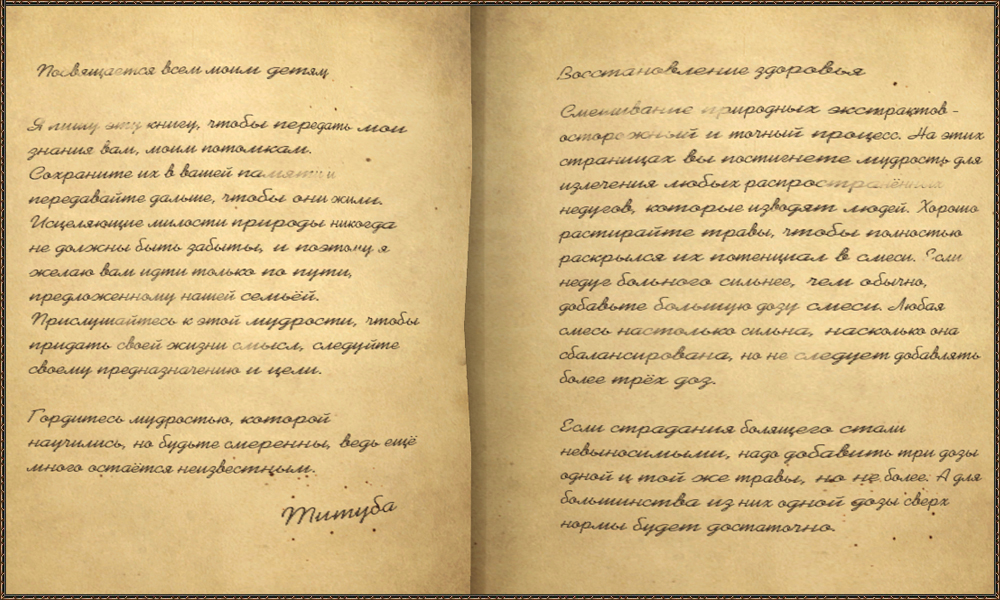 Посвящается всем моим детям
Я пишу эту книгу, чтобы передать мои
знания вам, моим потомкам.
Сохраните их в вашей памяти и
передавайте дальше, чтобы они жили.
Исцеляющие милости природы никогда
не должны быть забыты, и поэтому я
желаю вам идти только по пути,
предложенному нашей семьёй.
Прислушайтесь к этой мудрости, чтобы
придать своей жизни смысл, следуйте
своему предназначению и цели.
Гордитесь мудростью, которой
научились, но будьте смеренны, ведь ещё
много остаётся неизвестным.
Титуба
Восстановление здоровья
Смешивание природных экстрактов -
осторожный и точный процесс. На этих
страницах вы постигнете мудрость для
излечения любых распространённых
недугов, которые изводят людей. Хорошо
растирайте травы, чтобы полностью
раскрылся их потенциал в смеси. Если
недуг больного сильнее, чем обычно,
добавьте большую дозу смеси. Любая
смесь настолько сильна, насколько она
сбалансирована, но не следует добавлять
более трёх доз.
Если страдания болящего стали
невыносимыми, надо добавить три дозы
одной и той же травы, но не более. А для
большинства из них одной дозы сверх
нормы будет достаточно.